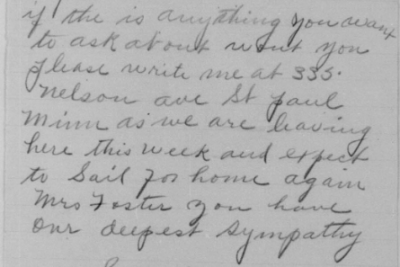 if the is anything you want
to ask about wont you
please write me at 335.
Nelson ave St Paul
Minn as we are leaving
here this week and expect
to Sail for home again
Mrs Foster you have
our deepest Sympathy